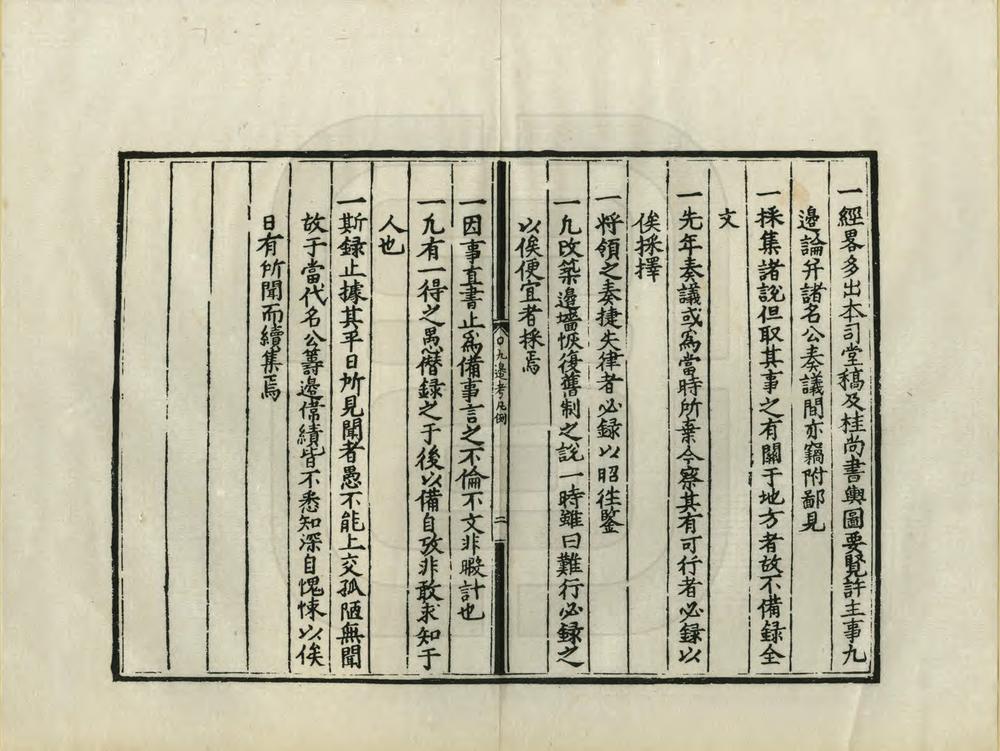 一經畧多出本司堂稿及桂尚書輿圖要覽許主事九
邊論并諸名公奏議間亦竊附鄙見
一採集諸說但取其事之有關于地方者故不備録全
文
一先年奏議或爲當時所棄今察其有可行者必録以
俟採擇
一將領之奏捷失律者必録以昭徃鑒
一凡改築邊墻恢復舊制之説一時雖曰難行必録之
以俟便宜者採焉
九邊考凡例
二
一因事直書止爲備事言之不倫不文非暇計也
一凡有一得之愚僣録之于後以備自攷非敢求知于
人也
一斯録止據其平日所見聞者愚不能上交孤陋無聞
故于當代名公籌邊偉績皆不悉知深自愧悚以俟
日有所聞而續集焉